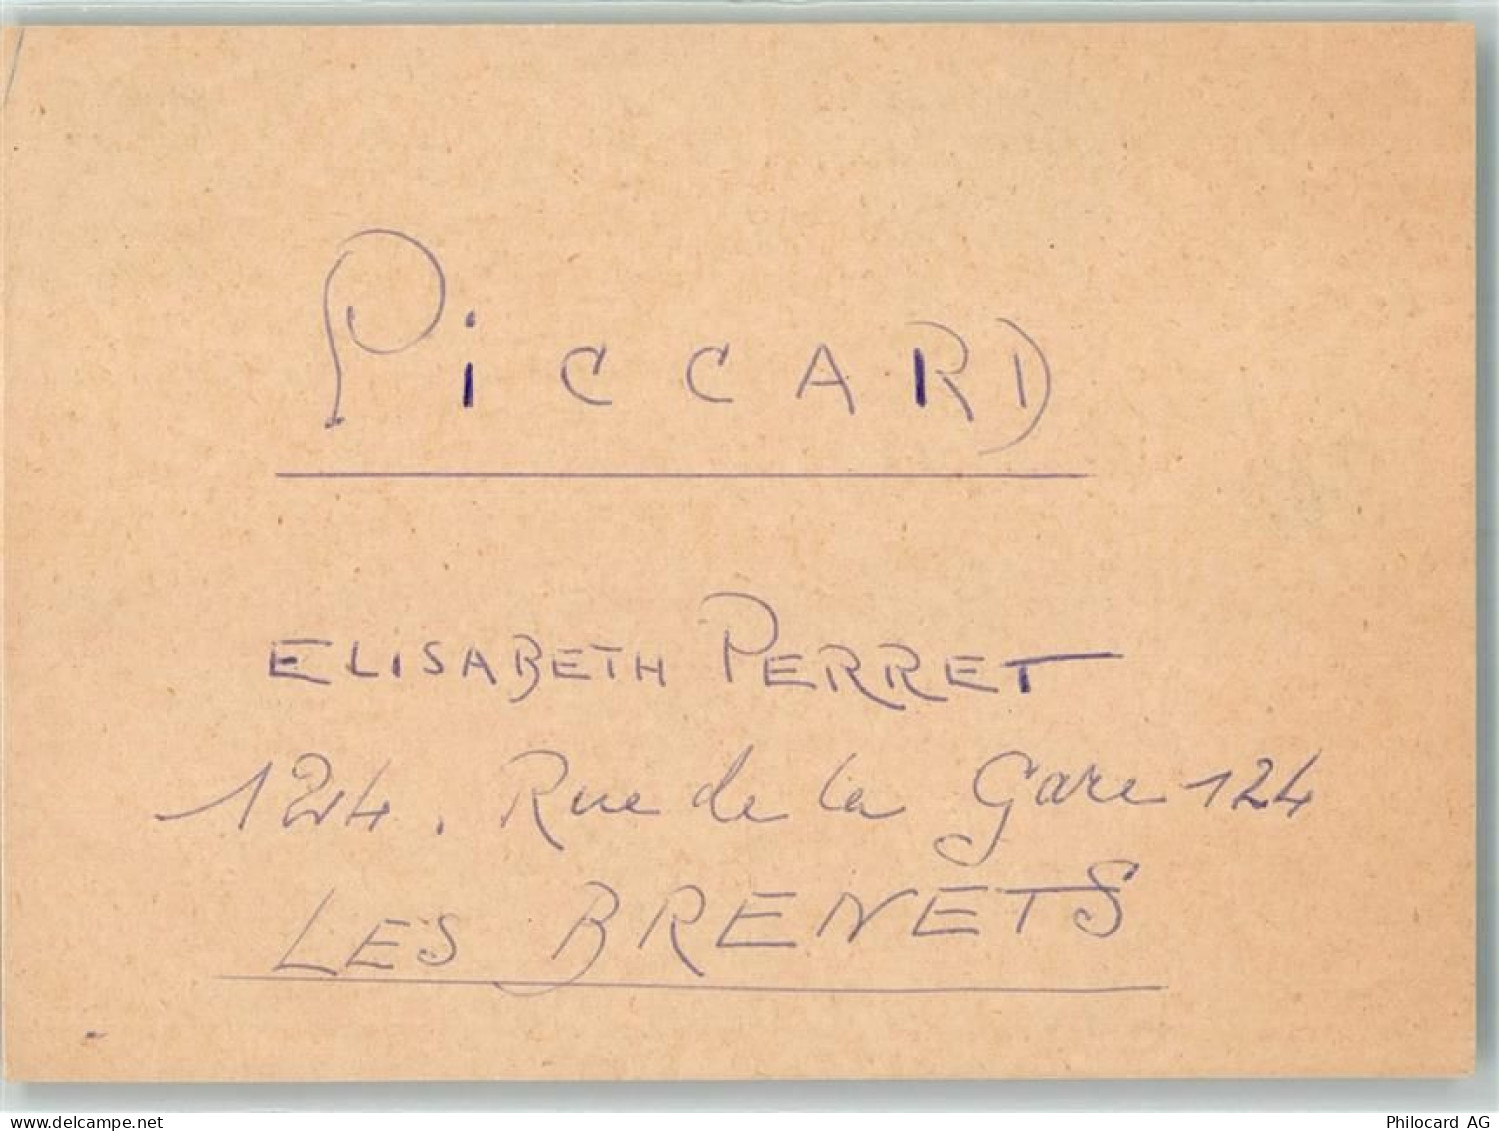 PiCCARD
ELISABETH PERRET
124. Rue de la Gare 124
LES BRENETS
www.delcampe.net
Philocard AG